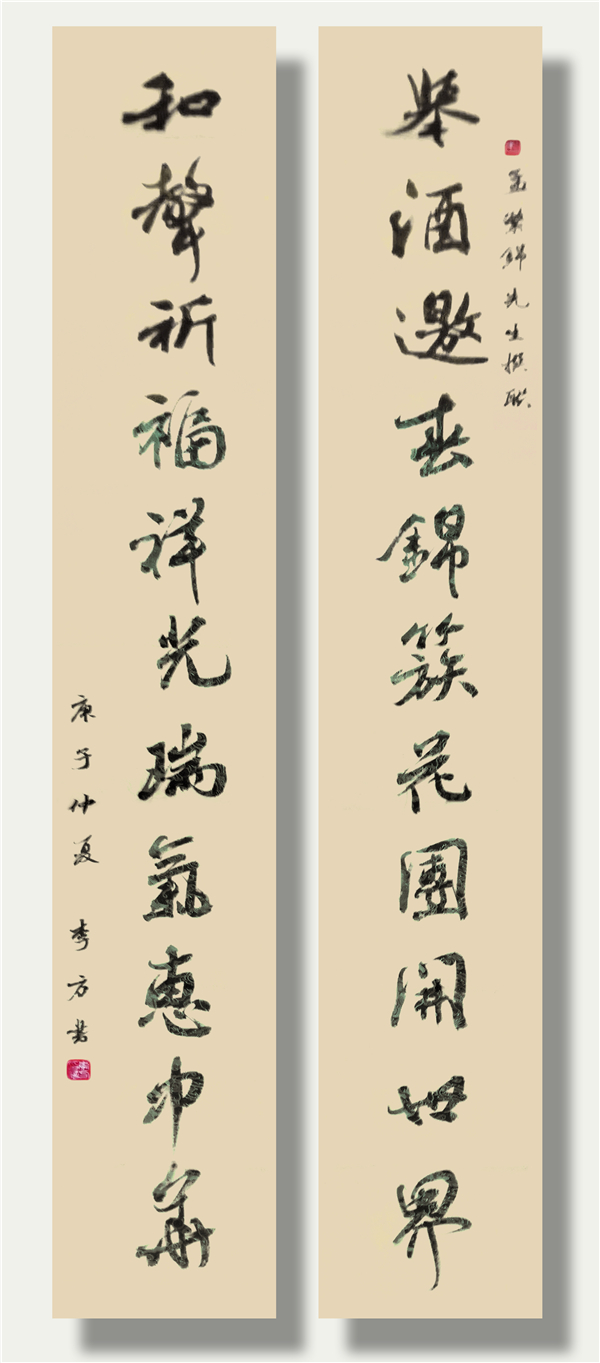 舉酒邀春錦簇花團開世界
錦先生撰聯
和聲祈福祥光瑞氣惠中華
庚子仲夏 李方書